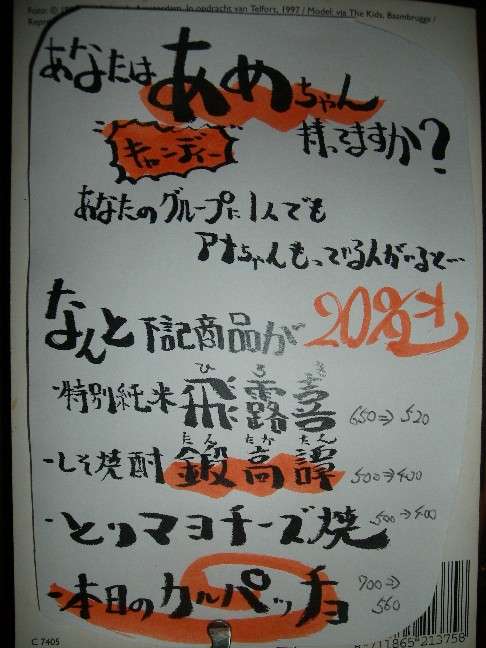 Foto: © 1997 Amsterdam. In opdracht van Telfort, 1997 / Model: via The Kids, Baambrugge /
あなたはあめちゃん
キャンディー
持ってますか?
あなたのグループに1人でも
アメちゃんもっている人がいると…
なんと下記商品が20%オフ
ひろき
・特別純米飛露喜 650⇒520
たんたかたん
・しそ焼酎鍛高譚 500⇒400
・とりマヨチーズ焼 500⇒400
・本日のカルパッチョ 700⇒560
C 7405
711865213758